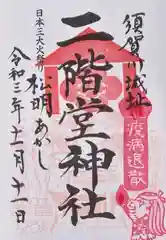 須賀川城址
疫病退散
二階堂神社
日本三大火祭
松明あかし
令和三年十一月十一日